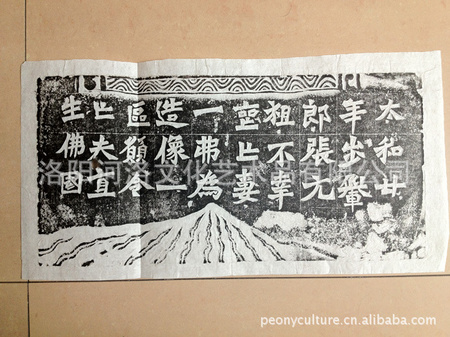 太和廿
年步轝
郎張元
祖不幸
喪亡妻
一弗為
造像一
區願令
亡夫直
生佛國
洛阳河洛文化艺术有限公司
peonyculture.cn.alibaba.com